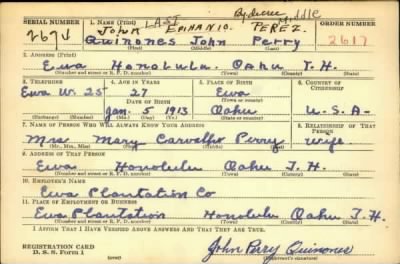 SERIAL NUMBER 1. NAME (Print) By decree ORDER NUMBER
LAST Middle
JOHN EPIHANIO. PEREZ.
Quinones John Perry 2617
(First) (Middle) (Last)
2. ADDRESS (Print)
Ewa Honolulu. Oahu T.H.
(Number and street or R. F. D. number) (Town) (County) (State)
3. TELEPHONE 4. AGE IN YEARS 5. PLACE OF BIRTH 6. COUNTRY OF CITIZENSHIP
Ewa W. 25 27 Ewa
DATE OF BIRTH (Town or county)
Jan. 5 1913 Oahu U.S.A.
(Exchange) (Number) (Mo.) (Day) (Yr.) (State or country)
7. NAME OF PERSON WHO WILL ALWAYS KNOW YOUR ADDRESS 8. RELATIONSHIP OF THAT PERSON
Mrs Mary Carvalho Perry wife
(Mr., Mrs., Miss) (First) (Middle) (Last)
9. ADDRESS OF THAT PERSON
Ewa Honolulu Oahu T.H.
(Number and street or R. F. D. number) (Town) (County) (State)
10. EMPLOYER'S NAME
Ewa Plantation Co
11. PLACE OF EMPLOYMENT OR BUSINESS
Ewa Plantation Honolulu Oahu T.H.
(Number and street or R. F. D. number) (Town) (County) (State)
I AFFIRM THAT I HAVE VERIFIED ABOVE ANSWERS AND THAT THEY ARE TRUE.
REGISTRATION CARD
D. S. S. Form 1 John Perry Quinones
(over) (Registrant's signature)